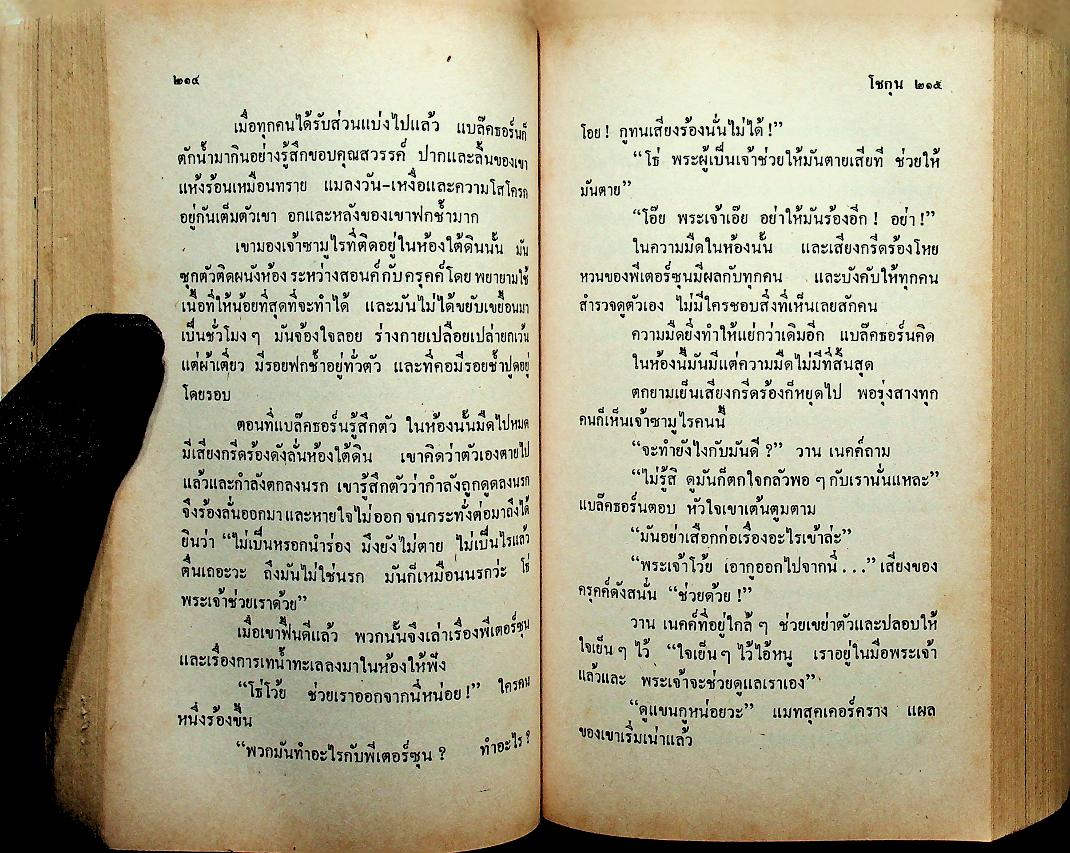 ๒๑๔
เมื่อทุกคนได้รับส่วนแบ่งไปแล้ว แบล๊คธอร์นก็
ตักน้ำมากินอย่างรู้สึกขอบคุณสวรรค์ ปากและลิ้นของเขา
แห้งร้อนเหมือนทราย แมลงวัน-เหงื่อและความโสโครก
อยู่กันเต็มตัวเขา อกและหลังของเขาฟกช้ำมาก
เขามองเจ้าซามูไรที่ติดอยู่ในห้องใต้ดินนั้น มัน
ซุกตัวติดผนังห้อง ระหว่างสอนค์กับครุคค์โดย พยายามใช้
เนื้อที่ให้น้อยที่สุดที่จะทำได้ และมันไม่ได้ขยับเขยื้อนมา
เป็นชั่วโมง ๆ มันจ้องใจลอย ร่างกายเปลือยเปล่ายกเว้น
แต่ผ้าเตี่ยว มีรอยฟกช้ำอยู่ทั่วตัว และที่คอมีรอยช้ำปูดอยู่
โดยรอบ
ตอนที่แบล๊คธอร์นรู้สึกตัว ในห้องนั้นมืดไปหมด
มีเสียงกรีดร้องดังลั่นห้องใต้ดิน เขาคิดว่าตัวเองตายไป
แล้วและกำลังตกลงนรก เขารู้สึกตัวว่ากำลังถูกดูดลงนรก
จึงร้องลั่นออกมา และหายใจไม่ออก จนกระทั่งต่อมาถึงได้
ยินว่า “ไม่เป็นหรอกนำร่อง มึงยังไม่ตาย ไม่เป็นไรแล้ว
ตื่นเถอะวะ ถึงมันไม่ใช่นรก มันก็เหมือนนรกว่ะ โธ่
พระเจ้าช่วยเราด้วย”
เมื่อเขาฟื้นดีแล้ว พวกนั้นจึงเล่าเรื่องพีเตอร์ซุน
และเรื่องการเทน้ำทะเลลงมาในห้องให้ฟัง
“โธ่โว้ย ช่วยเราออกจากนี่หน่อย !” ใครคน
หนึ่งร้องขึ้น
“พวกมันทำอะไรกับพีเตอร์ซุน ? ทำอะไร ?
โชกุน ๒๑๕
โอย ! กูทนเสียงร้องนั่นไม่ได้ !”
“โธ่ พระผู้เป็นเจ้าช่วยให้มันตายเสียที ช่วยให้
มันตาย”
“โอ๊ย พระเจ้าเอ๊ย อย่าให้มันร้องอีก ! อย่า !”
ในความมืดในห้องนั้น และเสียงกรีดร้องโหย
หวนของพีเตอร์ซุนมีผลกับทุกคน และบังคับให้ทุกคน
สำรวจดูตัวเอง ไม่มีใครชอบสิ่งที่เห็นเลยสักคน
ความมืดยิ่งทำให้แย่กว่าเดิมอีก แบล๊คธอร์นคิด
ในห้องนี้มันมีแต่ความมืดไม่มีที่สิ้นสุด
ตกยามเย็นเสียงกรีดร้องก็หยุดไป พอรุ่งสางทุก
คนก็เห็นเจ้าซามูไรคนนี้
“จะทำยังไงกับมันดี ?” วาน เนคค์ถาม
“ไม่รู้สิ ดูมันก็ตกใจกลัวพอ ๆ กับเรานั่นแหละ”
แบล๊คธอร์นตอบ หัวใจเขาเต้นตูมตาม
“มันอย่าเสือกก่อเรื่องอะไรเข้าล่ะ”
“พระเจ้าโว้ย เอากูออกไปจากนี่ . . .” เสียงของ
ครุคค์ดังสนั่น “ช่วยด้วย !”
วาน เนคค์ที่อยู่ใกล้ ๆ ช่วยเขย่าตัวและปลอบให้
ใจเย็น ๆ ไว้ “ใจเย็น ๆ ไว้ไอ้หนู เราอยู่ในมือพระเจ้า
แล้วและ พระเจ้าจะช่วยดูแลเราเอง”
“ดูแขนกูหน่อยวะ” แมทสุคเคอร์คราง แผล
ของเขาเริ่มเน่าแล้ว